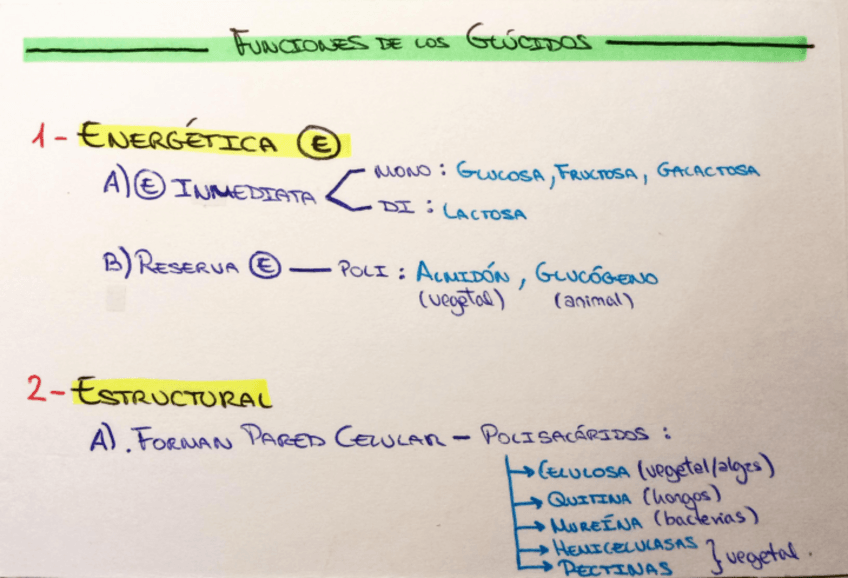 FUNCIONES DE LOS GLÚCIDOS
1- ENERGÉTICA (E)
A) (E) INMEDIATA < MONO : GLUCOSA, FRUCTOSA, GALACTOSA
DI : LACTOSA
B) RESERVA (E) — POLI : ALMIDÓN, GLUCÓGENO
(vegetal) (animal)
2- ESTRUCTURAL
A). FORMAN PARED CELULAR – POLISACÁRIDOS :
→ CELULOSA (vegetal/algas)
→ QUITINA (hongos)
→ MUREÍNA (bacterias)
→ HEMICELULASAS } vegetal.
→ PECTINAS